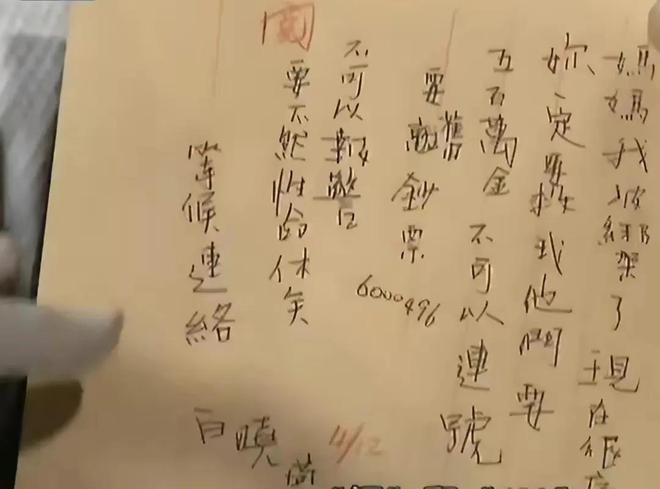 媽媽我被綁架了現在很
妳一定要救我他們要
五百萬美金不可以連號
要舊鈔票
6000496
不可以報警
要不然性命休矣
等候連絡
白曉
4/12